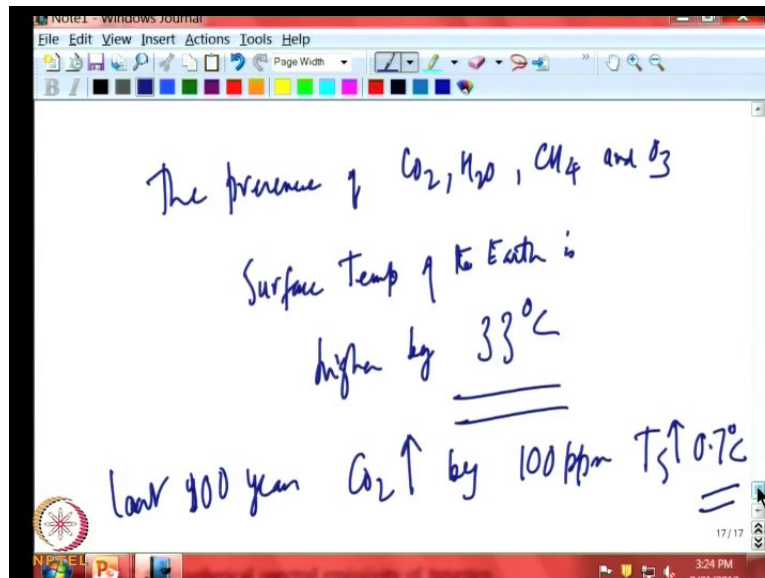 Note1 - Windows Journal
File Edit View Insert Actions Tools Help
Page Width
B I
The presence of CO2, H2O, CH4 and O3
Surface Temp of the Earth is
higher by 33°C
last 100 year CO2 ↑ by 100 ppm Ts ↑ 0.7°C
17/17
NPTEL
3:24 PM